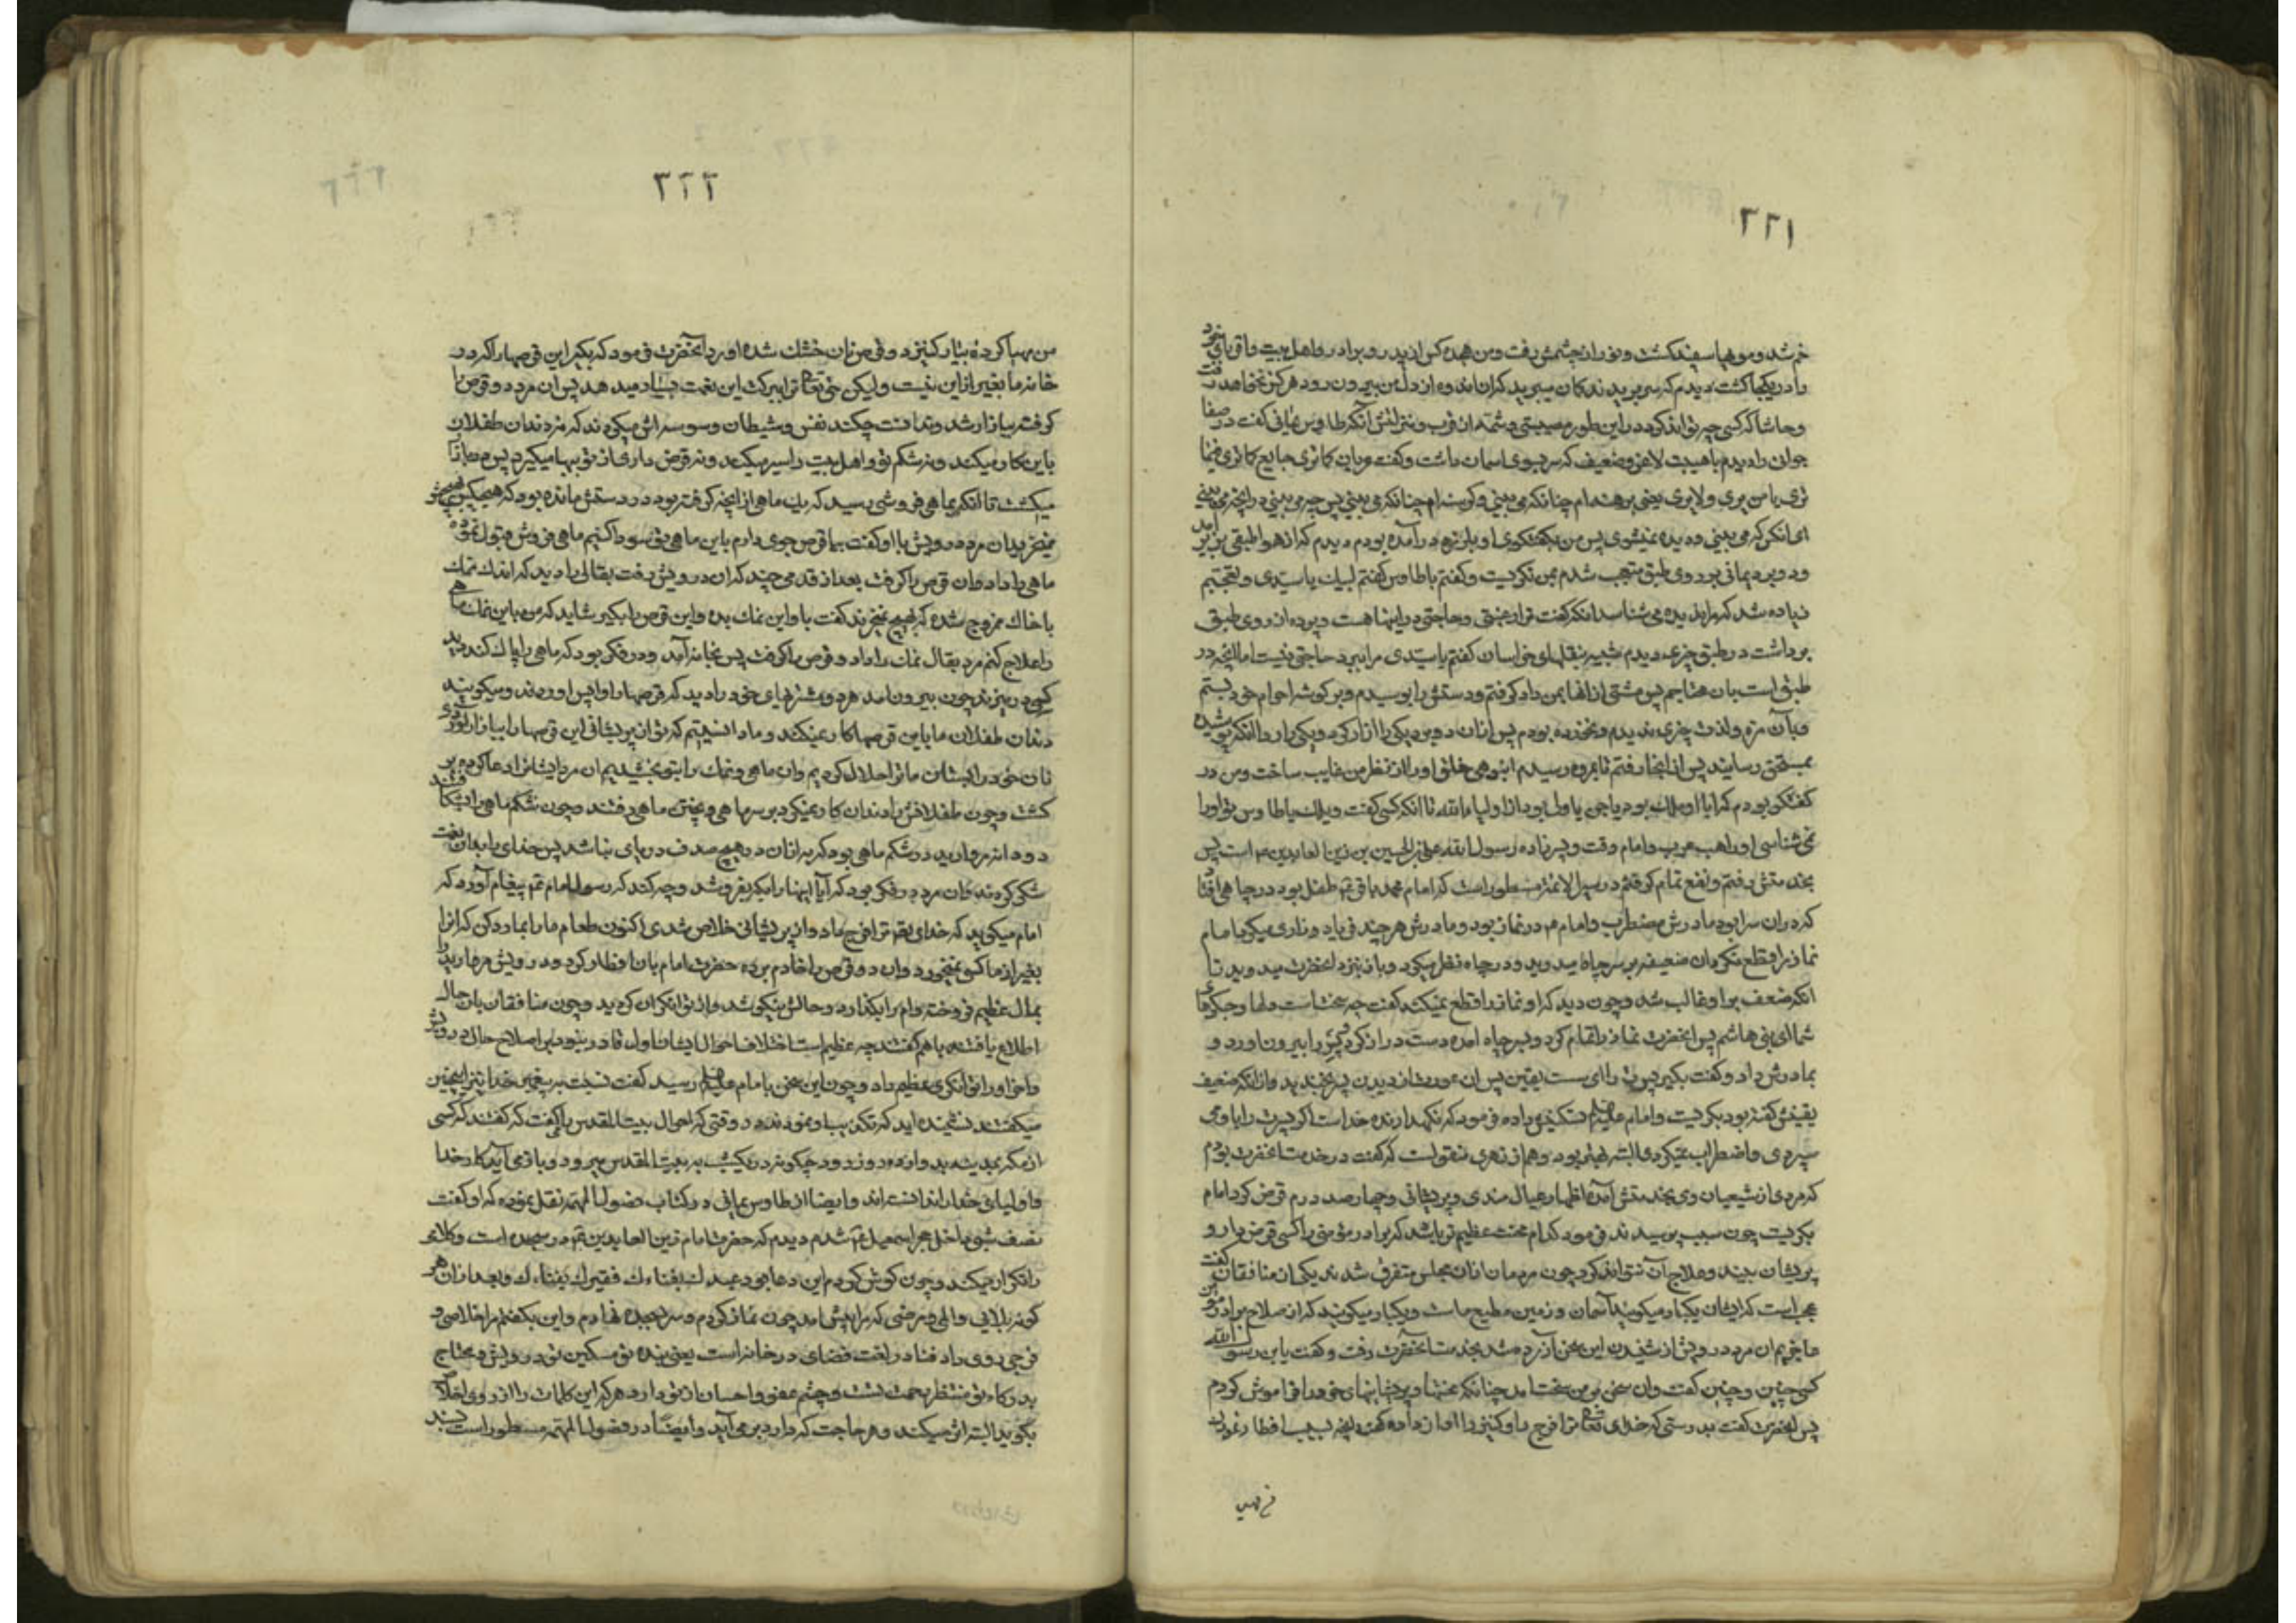 ۲۲۱
خم شد و مویها سفید کشت و نور از چشمش رفت و من هجده کس از پدر و برادر و اهل بیت و اقربای خود
را در یکجا کشته دیدم که سر بریدند کمان میبرید که آن اندوه از دل من بیرون رود هرکز نخواهد رفت
و حاشا که کسی چه تواند کرد در این طور مصیبتی و شمه از قرب و منزلتش آنکه طاوس یمانی کفت در صفا
جوان را دیدم با هیبت لاغر و ضعیف که سر بسوی اسمان داشت و کفت عریان کما تری جایع کما تری فیما
تری یا من یری و لا یری یعنی برهنه ام چنانکه می بینی و کرسنه ام چنانکه می بینی پس چه می بینی در انچه می بینی
ای انکس که می بینی و دیده نمیشوی پس من بکفتکوی او بلرزه در آمده بودم دیدم که از هوا طبقی بزیر آمد
و دو برد یمانی بر روی طبق متعجب شدم بمن نکریست و کفت یا طاوس کفتم لبیک یا سیدی و تعجبم
زیاده شد که مرا ندیده می شناسد انکه کفت ترا رغبتی و حاجتی در اینها هست و پرده از روی طبق
برداشت در طبق چیزی دیدم شبیه بنقلهای خراسان کفتم یا سیدی مرا ببرد حاجتی نیست اما انچه در
طبق است بان محتاجم پس مشتی از انها بمن داد کرفتم و دستش را بوسیدم و بر کوشه احرام خود بستم
و بآن مزه و لذت چیزی ندیدم و نخورده بودم پس ازان دو برد یکی را ازار کرد و یکی را ردا انکه پوشیده
بمستحق رسانید پس از انجا رفتم تا بمروه رسیدم انبوهی خلق او را از نظر من غایب ساخت و من در
کفتکو بودم که آیا او ملک بود یا جن یا ولی بود از اولیاء الله تا انکه کسی کفت ویلک یا طاوس تو او را
نمی شناسی او راهب عرب و امام وقت و پسر زاده رسول الله علی بن الحسین بن زین العابدین ع است پس
بخدمتش رفتم و نفع تمام کرفتم در سیر الائمه مسطور است که امام محمد باقر ع طفل بود در چاهی افتاد
که در ان سرا بود مادرش مضطرب و امام ع در نماز بود و مادرش هر چند فریاد و زاری میکرد امام
نماز را قطع نکرد ان ضعیفه بر سر چاه میدوید و در چاه نظر میکرد و باز بنزد انحضرت میدوید تا
انکه ضعف بر او غالب شد و چون دید که او نماز را قطع نمیکند کفت چه سخت است دلها و جکرهای
شما ای بنی هاشم پس انحضرت نماز را تمام کرد و بسر چاه آمده دست دراز کرد پسر را بیرون اورد و
بمادرش داد و کفت بکیر پسرت را ای سست یقین پس ان عورت از دیدن پسر بخندید و از انکه ضعیف
یقینش کفته بود بکریست و امام علیه السلام تسکینش داده فرمود که نکهدارنده خداست اکر پسرت را باو می
سپردی و اضطراب نمیکردی البته بهتر بود و هم از زهری منقولست که کفت در خدمت انحضرت بودم
که مردی از شیعیان وی بخدمتش آمده اظهار عیال مندی و پریشانی و چهار صد درم قرض کرد امام
بکریست چون سبب پرسیدند فرمود کدام محنت عظیم تر باشد که برادر مؤمنی را کسی قرض دار و
پریشان بیند و علاج آن نتواند کرد چون مردمان ازان مجلس متفرق شدند یکی از منافقان کفت
عجب است که ایشان یکبار میکویند آسمان و زمین مطیع ماست و یکبار میکویند که از صلاح برادر مؤمن
عاجزیم ان مرد درویش از شنیدن این سخن آزرده شد بخدمت انحضرت رفت و کفت یابن رسول الله
کسی چنین و چنین کفت و ان سخن بر من سخت آمد چنانکه محنتها و پریشانیهای خود را فراموش کردم
پس انحضرت کفت بدرستی که خدای تعالی ترا فرج داد و کنیز را اواز داده کفت انچه بسبب افطار نمودن
۲۲۲
من مهیا کرده بیار کنیز دو قرص نان خشک شده اورد انحضرت فرمود که بکیر این قرصها را که در
خانه ما بغیر از این نیست و لیکن حق تعالی ترا ببرکت این نعمت بسیار میدهد پس ان مرد دو قرص را
کرفته ببازار شد و ندانست چکند نفس و شیطان وسوسه اش میکردند که نه دندان طفلان
باین کار میکند و نه شکم تو و اهل بیت را سیر میکند و نه قرض داری از تو بها میکیرد پس در بازار
میکشت تا انکه بماهی فروشی رسید که یک ماهی از انچه کرفته بود در دستش مانده بود که هیچکس
نمیخرید ان مرد درویش با او کفت بیا قرص جوی دارم باین ماهی تو سودا کنیم ماهی فروش قبول نموده
ماهی را داد و ان قرص را کرفت بعد از قدمی چند که ان درویش رفت بقالی را دید که اندک نمک
با خاک ممزوج شده که هیچ نمیخرند کفت با او این نمک بده و این قرص را بکیر شاید که من باین نمک ماهی
را علاج کنم مرد بقال نمک را داد و قرص را کرفت پس بخانه آمد و در فکر بود که ماهی را پاک کند دید
کسی در میزند چون بیرون امد هر دو مشتریهای خود را دید که قرصها را واپس اوردند و میکویند
دندان طفلان ما باین قرصها کار نمیکند و ما دانستیم که تو از پریشانی این قرصها را ببازار آوردی
نان خود را بستان ما ترا حلال کردیم و ان ماهی و نمک را بتو بخشیدیم ان مرد ایشانرا دعا کرده بر
کشت و چون طفلانش را دندان کار نمیکرد بر سر ماهی و پختن ماهی رفتند و چون شکم ماهی را شکافتند
دو دانه مروارید در شکم ماهی بود که به ازان در هیچ صدف دریای نباشد پس خدای را بدان نعمت
شکر کردند و ان مرد در فکر بود که آیا اینها را بکه بفروشد و چه کند که رسول امام ع پیغام آورد که
امام میکوید که خدای تعالی ترا فرج داد و از پریشانی خلاص شدی اکنون طعام ما را بما رد کن که انرا
بغیر از ما کسی نمیخورد و ان دو قرص را خادم برده حضرت امام بان افطار کرد و درویش مروارید را
بمال عظیم فروخته وام را بکذارد و حالش نیکو شد و از توانکران کردید و چون منافقان بان حال
اطلاع یافتند با هم کفتند چه عظیم است اختلاف احوال ایشان اول قادر نبود بر اصلاح حال درویش
و اخر او را توانکری عظیم داد و چون این سخن بامام علیه السلام رسید کفت نسبت به پیغمبر خدا نیز اینچنین
میکفتند نشنیده اید که تکذیب او نمودند در وقتی که احوال بیت المقدس را کفت که کفتند که کسی
از مکه بمدینه بدوازده روز رود چکونه در یکشب به بیت المقدس میرود و باز می آید کار خدا
و اولیای خدا را ندانسته اند و ایضا از طاوس یمانی در کتاب فصول المهمه نقل نموده که او کفت
نصف شبی داخل حجر اسمعیل ع شدم دیدم که حضرت امام زین العابدین ع در سجده است و کلامی
را تکرار میکند و چون کوش کردم این دعا بود عبیدک بفنائک فقیرک بفنائک و بعد ازان هر
کونه بلایی و المی و مرضی که مرا پیش امد چون نماز کردم و سر بسجده نهادم و این بکفتم مرا خلاصی و
فرجی روی داد فنا در لغت فضای در خانه است یعنی بنده تو مسکین تو درویش و محتاج
بدرکاه تو منتظر رحمت تست و چشم عفو و احسان از تو دارد هر که این کلمات را از روی اخلاص
بکوید البته اثر میکند و هر حاجت که دارد بر می آید و ایضا در فصول المهمه مسطور است